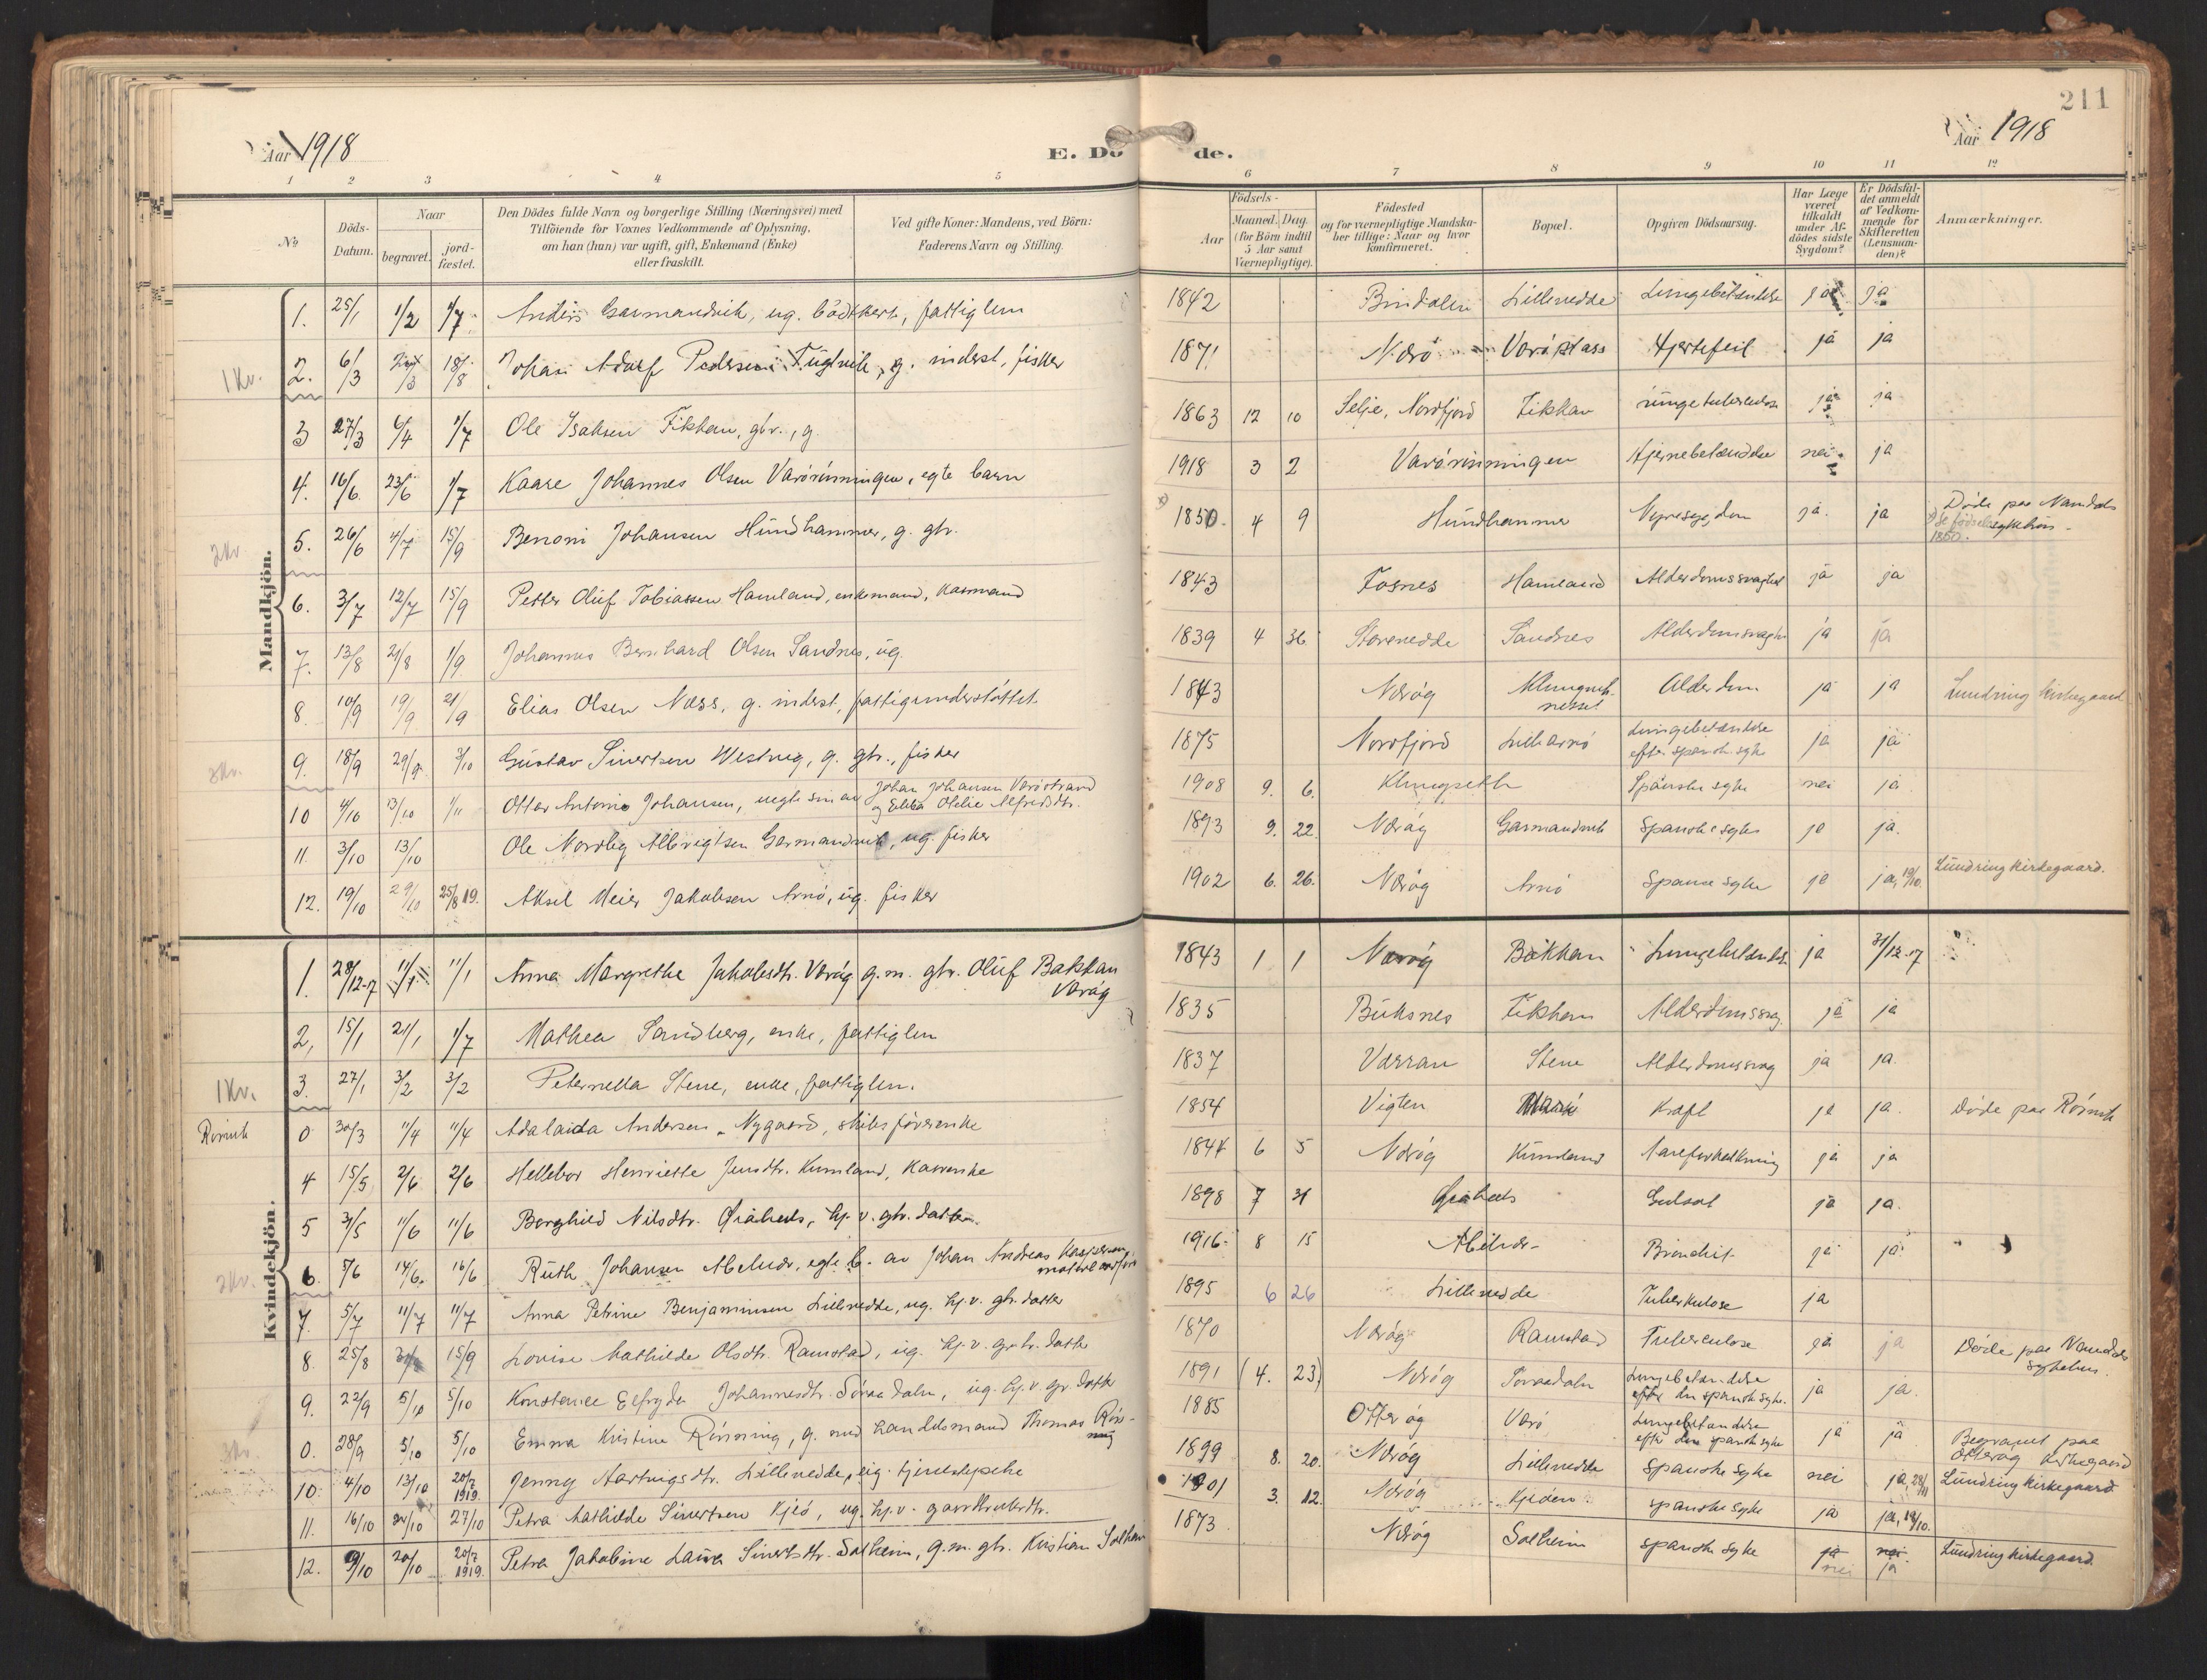 211
Aar 1918
E. Dö de.
Aar 1918
1 2 3 4 5 6 7 8 9 10 11 12
No
Döds-Datum.
Naar
begravet.
jordfæstet.
Den Dödes fulde Navn og borgerlige Stilling (Næringsvei) med
Tilföiende for Voxnes Vedkommende af Oplysning,
om han (hun) var ugift, gift, Enkemand (Enke)
eller fraskilt.
Ved gifte Koner: Mandens, ved Börn:
Faderens Navn og Stilling.
Födsels-
Aar
Maaned. Dag.
(for Börn indtil
5 Aar samt
Værnepligtige).
Födested
og for værnepligtige Mandska-
ber tillige: Naar og hvor
konfirmeret.
Bopæl.
Opgiven Dödsaarsag.
Har Læge
været
tilkaldt
under Af-
dödes sidste
Sygdom?
Er Dödsfal-
det anmeldt
af Vedkom-
mende for
Skifteretten
(Lensman-
den)?
Anmærkninger.
Mandkjön.
1. 25/1 1/2 1/7 Anders Garmandvik, ug. bödtkert, fattiglem 1842 Bindalen Lillenedde Lungebetændelse ja ja
1 Kr. 2. 6/3 /3 18/8 Johan Adolf Pedersen Fuglvik, g. inderst, fisker 1871 Nærö Varöplass Hjertefeil ja ja
3 27/3 6/4 1/7 Ole Isaksen Fikkan, gbr., g. 1863 12 10 Selje, Nordfjord Fikkan Lungetuberculose ja ja
4. 16/6 23/6 1/7 Kaare Johannes Olsen Varörönningen, egte barn 1918 3 2 Varörönningen Hjernebetændelse nei ja
2 Kr 5. 26/6 4/7 15/9 Benoni Johansen Hundhammer, g. gbr. 1850. 4 9 Hundhammer Nyresygdom ja. ja Döde paa Namdals sykehus.
1850.
6. 3/7 12/7 15/9 Petter Oluf Tobiassen Hamland, enkemand, kaarmand 1843 Fosnes Hamland Alderdomssvaghed ja ja
7. 13/8 21/8 1/9 Johannes Bernhard Olsen Sandnes, ug. 1839 4 Storenedde Sandnes Alderdomssvaghet ja ja
8. 10/9 19/9 21/9 Elias Olsen Næss, g. inderst, fattigunderstöttet 1843 Næröy Alderdom ja ja Lundring kirkegaard
3 Kr. 9. 18/9 29/9 3/10 Gustav Sivertsen Westvig, g. gbr., fisker 1875 Nordfjord Lillearnö Lungebetændelse
efter spansk syke ja ja
10 4/10 13/10 1/11 Otter Antonio Johansen, uegte sön av Johan Johansen Væröstrand
og Ellea Otelie Alfredsdtr. 1908 9. 6. Klungseth Spanske syke nei ja
11. 3/10 13/10 Ole Nordby Albrigtsen Garmandvik, ug. fisker 1893 9. 22. Næröy Garmandvik Spanske syke ja ja.
12. 19/10 29/10 25/8 19. Aksel Meier Jakobsen Arnö, ug. fisker 1902 6. 26. Næröy Arnö Spanske syke ja ja, 19/10. Lundring kirkegaard.
Kvindekjön.
1. 28/12-17 11/1 11/1 Anna Margrethe Jakobsdtr. Væröy g.m. gbr. Oluf Bakkan
Væröy 1843 1 1 Næröy Bakkan Lungebetændelse ja 31/12-17
2, 15/1 21/1 1/7 Mathea Sandberg, enke, fattiglem 1835 Buksnes Fikkan Alderdomssvag. ja ja
1 Kr. 3. 27/1 3/2 3/2 Peternella Stene, enke, fattiglem. 1837 Værran Stene Alderdomssvag ja ja.
Rörvik 0 30/3 11/4 11/4 Adalaida Andersen Nygaard, skibsförerenke 1854 Vigten Kræft ja ja. Döde paa Rörvik
4 15/5 2/6 2/6 Hellebor Henriette Jensdtr. Kumland, kaarenke 6 5 Næröy Kumland Aareforkalkning ja ja
5 31/5 11/6 11/6 Borghild Nilsdtr. Graahols, hj. v. gbr. datter. 1898 7 31 Graahols Gulsot ja ja.
2 Kr. 6. 5/6 14/6. 16/6 Ruth Johansen Abelvær, egte b. av Johan Andreas Kaspersen 1916. 8 15 Abelvær Bronchit ja ja
7. 5/7 11/7 11/7 Anna Petrine Benjaminsen Lillenedde, ug. hj. v. gbr. datter 1895 6 26 Lillenedde Tuberkulose ja
8. 25/8 15/9 Lovise Mathilde Olsdtr. Ramstad, ug. hj. v. gbr. datter 1870 Næröy Ramstad Tuberculose ja ja Döde paa Namdals
sykehus.
9. 22/9 5/10 5/10 Konstance Elfryda Johannesdtr. Söraadaln, ug. hj. v. gbr. datter 1891 (4. 23) Næröy Soraadaln Lungebetændelse
efter den spanske syke. ja ja.
3 Kr. 0. 28/9 5/10 5/10 Emma Kristine Rönning, g. med handelsmand Thomas Rön-
ning 1885 Otteröy Værö Lungebetændelse
efter den spanske syke ja ja Begravet paa
Otteröy kirkegaard
10. 4/10 13/10 20/7 1919. Jenny Hartvigsdtr. Lillenedde, ug. tjenestepike 1899 8. 20. Næröy Lillenedde spanske syke nei ja, Lundring kirkegaard
11. 16/10 /10 27/10 Petra Mathilde Sivertsen Kjeö, ug. hj. v. gaardbrukerdtr. 1901 3. 12. Næröy Kjeöen spanske syke ja ja, 19/10.
12. 9/10 20/10 20/7 1919. Petra Jakobine Laura Sivertsdtr. Solheim, g.m. gbr. Kristian Solheim 1873 Næröy Solheim spanske syke ja
nei nei.
ja Lundring kirkegaard.